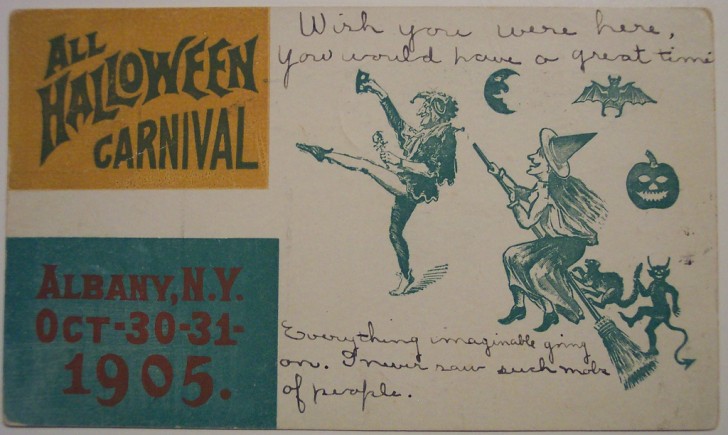 ALL
HALLOWEEN
CARNIVAL
ALBANY, N.Y.
OCT-30-31-
1905.
Wish you were here,
you would have a great time
Everything imaginable going
on. I never saw such mobs
of people.